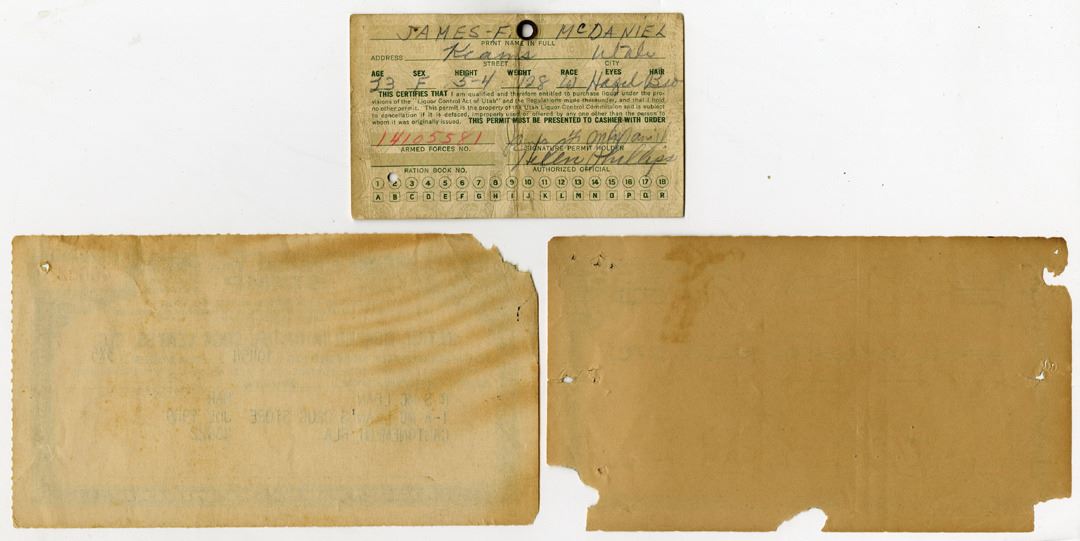 JAMES-F. McDANIEL
PRINT NAME IN FULL
ADDRESS Kearns Utah
STREET CITY
AGE SEX HEIGHT WEIGHT RACE EYES HAIR
23 F 5-4 128 W Hazel Bro
THIS CERTIFIES THAT I am qualified and therefore entitled to purchase liquor under the pro-
visions of the "Liquor Control Act of Utah" and the Regulations made thereunder, and that I hold
no other permit. This permit is the property of the Utah Liquor Control Commission and is subject
to cancellation if it is defaced, improperly used or offered by any one other than the person to
whom it was originally issued. THIS PERMIT MUST BE PRESENTED TO CASHIER WITH ORDER
14105581 James F. McDaniel
ARMED FORCES NO. SIGNATURE PERMIT HOLDER
Helen Phillips
RATION BOOK NO. AUTHORIZED OFFICIAL
1 2 3 4 5 6 7 8 9 10 11 12 13 14 15 16 17 18
A B C D E F G H I J K L M N O P Q R